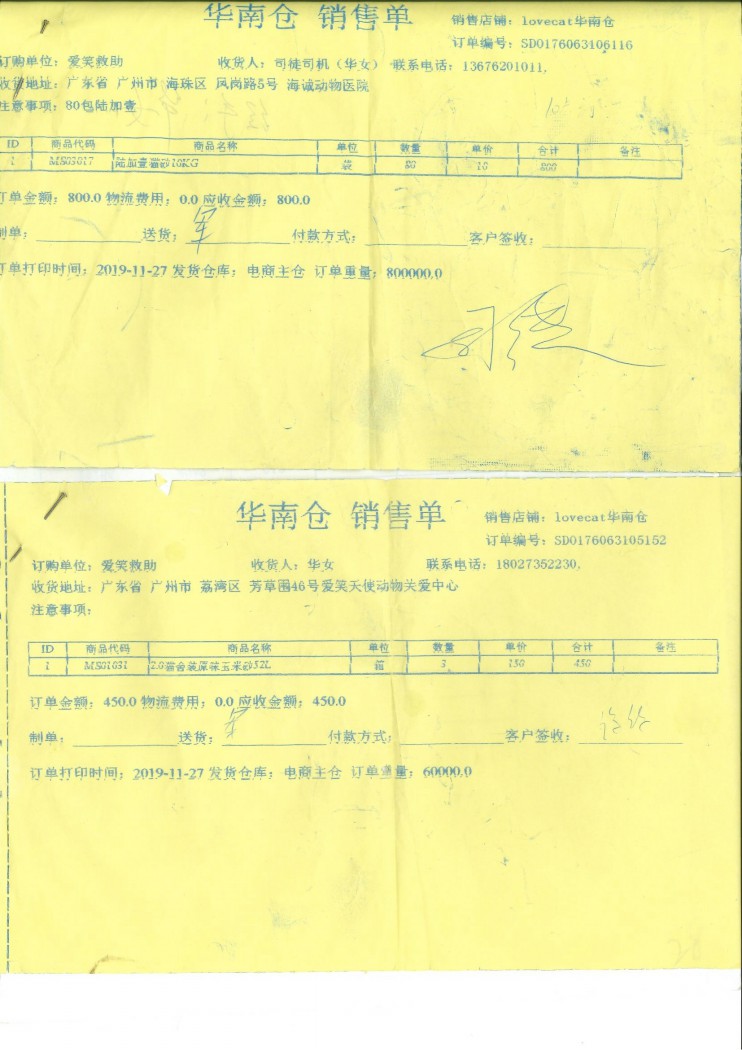 华南仓 销售单
销售店铺：lovecat华南仓
订单编号：SDO176063106116
订购单位：爱笑救助 收货人：司徒司机（华女） 联系电话：13676201011,
收货地址：广东省 广州市 海珠区 凤岗路5号 海诚动物医院
注意事项：80包陆加壹
ID 商品代码 商品名称 单位 数量 单价 合计 备注
1 MS03017 陆加壹猫砂10KG 袋 80 10 800
订单金额：800.0 物流费用：0.0 应收金额：800.0
制单： 送货：军 付款方式： 客户签收：
订单打印时间：2019-11-27 发货仓库：电商主仓 订单重量：800000.0
华南仓 销售单
销售店铺：lovecat华南仓
订单编号：SDO176063105152
订购单位：爱笑救助 收货人：华女 联系电话：18027352230,
收货地址：广东省 广州市 荔湾区 芳草围46号爱笑天使动物关爱中心
注意事项：
ID 商品代码 商品名称 单位 数量 单价 合计 备注
1 MS01031 2.0猫舍装原味玉米砂52L 箱 3 150 450
订单金额：450.0 物流费用：0.0 应收金额：450.0
制单： 送货：军 付款方式： 客户签收：
订单打印时间：2019-11-27 发货仓库：电商主仓 订单重量：60000.0